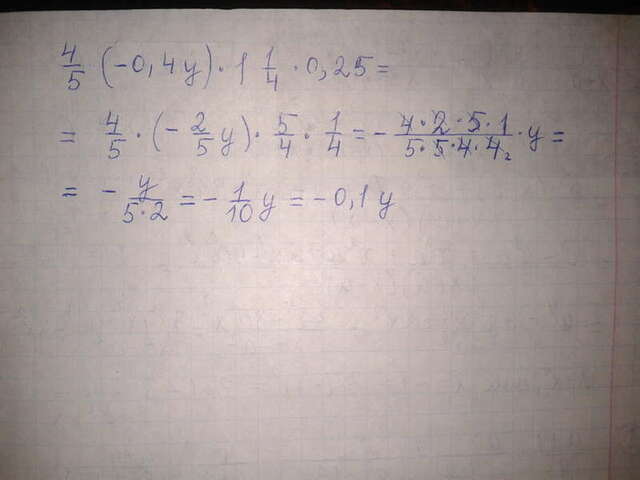 4/5 (-0,4y) · 1 1/4 · 0,25 =
= 4/5 · (- 2/5 y) · 5/4 · 1/4 = - 4·2·5·1/5·5·4·4₂ · y =
= - y/5·2 = - 1/10 y = -0,1 y